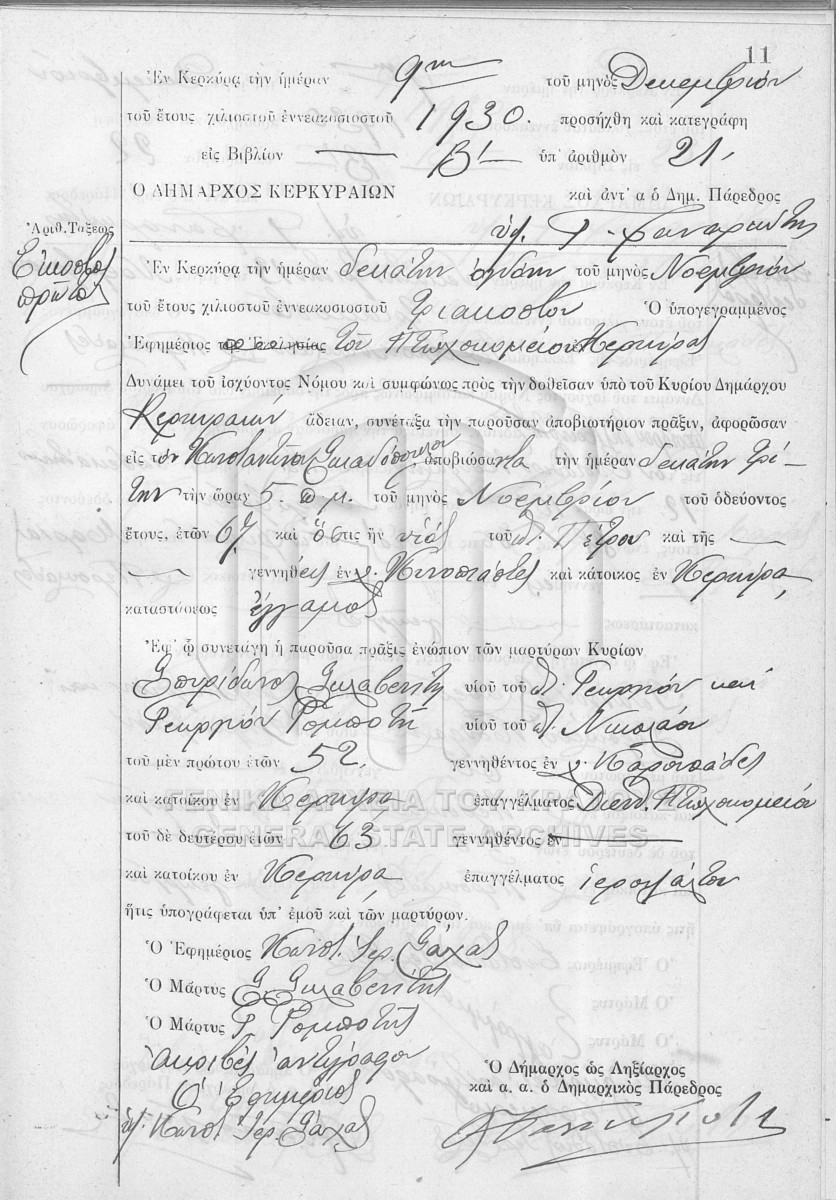 11
Ἐν Κερκύρᾳ τὴν ἡμέραν 9ην τοῦ μηνὸς Δεκεμβρίου
τοῦ ἔτους χιλιοστοῦ ἐννεακοσιοστοῦ 1930. προσήχθη καὶ κατεγράφη
εἰς Βιβλίον Β′ ὑπ' ἀριθμὸν 21.
Ο ΔΗΜΑΡΧΟΣ ΚΕΡΚΥΡΑΙΩΝ καὶ ἀντ' α ὁ Δημ. Πάρεδρος
Ἀριθ. Τάξεως
Εἰκοστὸς πρῶτος
Ἐν Κερκύρᾳ τὴν ἡμέραν δεκάτην ὀγδόην τοῦ μηνὸς Νοεμβρίου
τοῦ ἔτους χιλιοστοῦ ἐννεακοσιοστοῦ τριακοστοῦ Ὁ ὑπογεγραμμένος
Ἐφημέριος τοῦ Πτωχοκομείου Κερκύρας
Δυνάμει τοῦ ἰσχύοντος Νόμου καὶ συμφώνως πρὸς τὴν δοθεῖσαν ὑπὸ τοῦ Κυρίου Δημάρχου
Κερκυραίων ἄδειαν, συνέταξα τὴν παροῦσαν ἀποβιωτήριον πρᾶξιν, ἀφορῶσαν
εἰς τὸν Κωνσταντῖνον ἀποβιώσαντα τὴν ἡμέραν δεκάτην τρί-
την τὴν ὥραν 5. π.μ. τοῦ μηνὸς Νοεμβρίου τοῦ ὁδεύοντος
ἔτους, ἐτῶν 67 καὶ ὅστις ἦν υἱὸς τοῦ Πέτρου καὶ τῆς
γεννηθεὶς ἐν χ. Κυνοπιάστες καὶ κάτοικος ἐν Κερκύρᾳ,
καταστάσεως ἔγγαμος
Ἐφ' ᾧ συνετάγη ἡ παροῦσα πρᾶξις ἐνώπιον τῶν μαρτύρων Κυρίων
Σπυρίδωνος Σκλαβενίτη υἱοῦ τοῦ Γεωργίου καὶ
Γεωργίου Ρομποτῆ υἱοῦ τοῦ Νικολάου
τοῦ μὲν πρώτου ἐτῶν 52, γεννηθέντος ἐν χ. Καρουσάδες
καὶ κατοίκου ἐν Κερκύρᾳ ἐπαγγέλματος Διευθ. Πτωχοκομείου
τοῦ δὲ δευτέρου ἐτῶν 63 γεννηθέντος ἐν
καὶ κατοίκου ἐν Κερκύρᾳ ἐπαγγέλματος ἱεροψάλτου
ἥτις ὑπογράφεται ὑπ' ἐμοῦ καὶ τῶν μαρτύρων.
Ὁ Ἐφημέριος Κωνστ. Ἱερ.
Ὁ Μάρτυς Σ. Σκλαβενίτης
Ὁ Μάρτυς Γ. Ρομποτῆς
Ἀκριβὲς ἀντίγραφον
Ὁ Ἐφημέριος
Κωνστ. Ἱερ.
Ὁ Δήμαρχος ὡς Ληξίαρχος
καὶ α. α. ὁ Δημαρχικὸς Πάρεδρος
ΓΕΝΙΚΑ ΑΡΧΕΙΑ ΤΟΥ ΚΡΑΤΟΥΣ
GENERAL STATE ARCHIVES